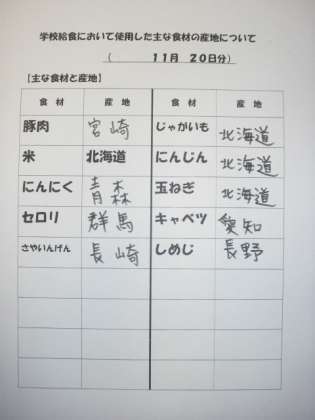 学校給食において使用した主な食材の産地について
（　　　　11月　20日分）
【主な食材と産地】
食　材　産　地　食　材　産　地
豚肉　宮崎　じゃがいも　北海道
米　北海道　にんじん　北海道
にんにく　青森　玉ねぎ　北海道
セロリ　群馬　キャベツ　愛知
さやいんげん　長崎　しめじ　長野